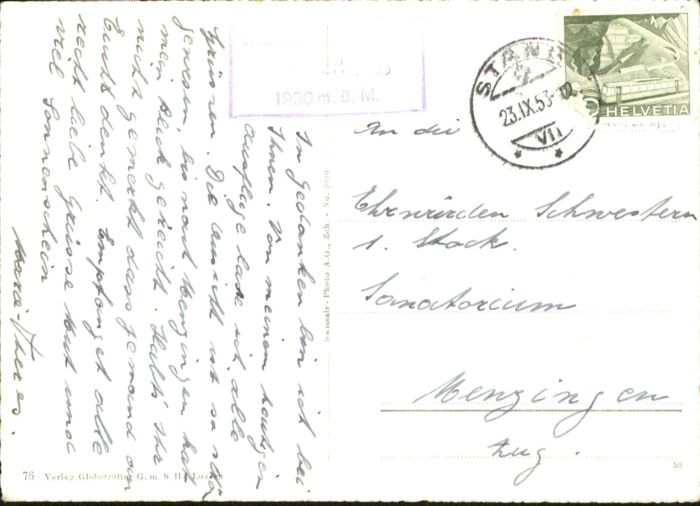 In Gedanken bin ich bei
Ihnen. Von meinem heutigen
Ausfluge lasse ich alle
grüssen. Die Aussicht ist so schön
gewesen, bis nach Menzingen hat
mein Blick gereicht. Habt Ihr
nicht gemerkt dass jemand an
Euch denkt. Empfanget alle
recht liebe Grüsse Mut und
viel Sonnenschein
Maria-Theres.
1900 m. ü. M.
STANS
23.IX.53
VII
HELVETIA
An die
Ehrwürden Schwestern
1. Stock.
Sanatorium
Menzingen
Zug.
Swissair-Photo A.G., Zch. - No.
76 Verlag Globetrotter G. m. b H., Luzern
50